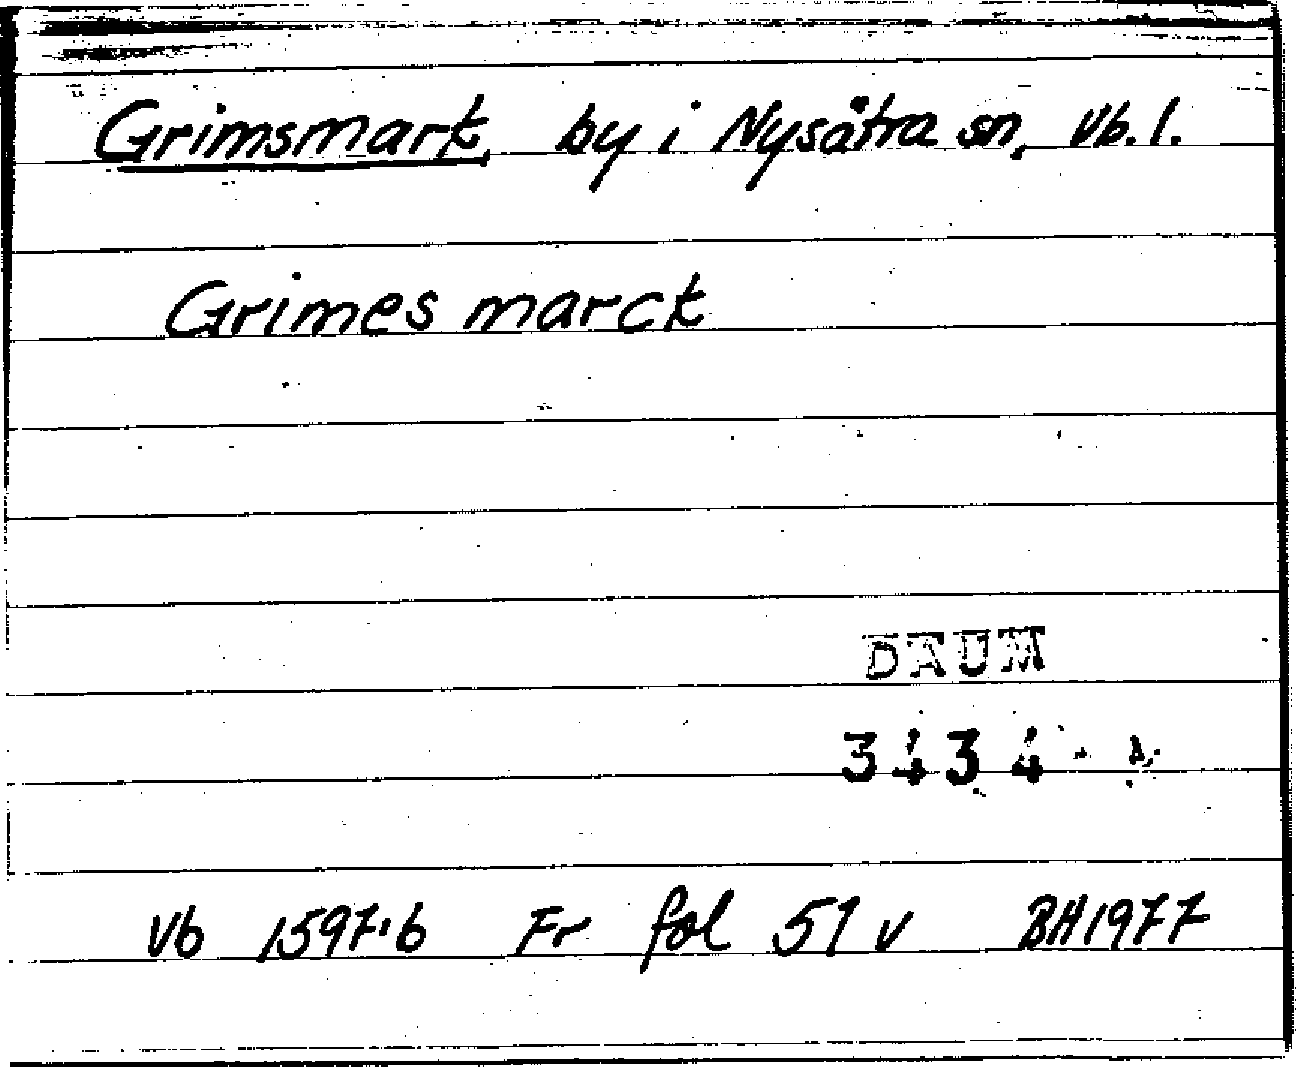 Grimsmark, by i Nysätra sn, Vb. l.
Grimes marck
DAUM
3434
Vb 1597:6 Fr fol 51 v BH1977